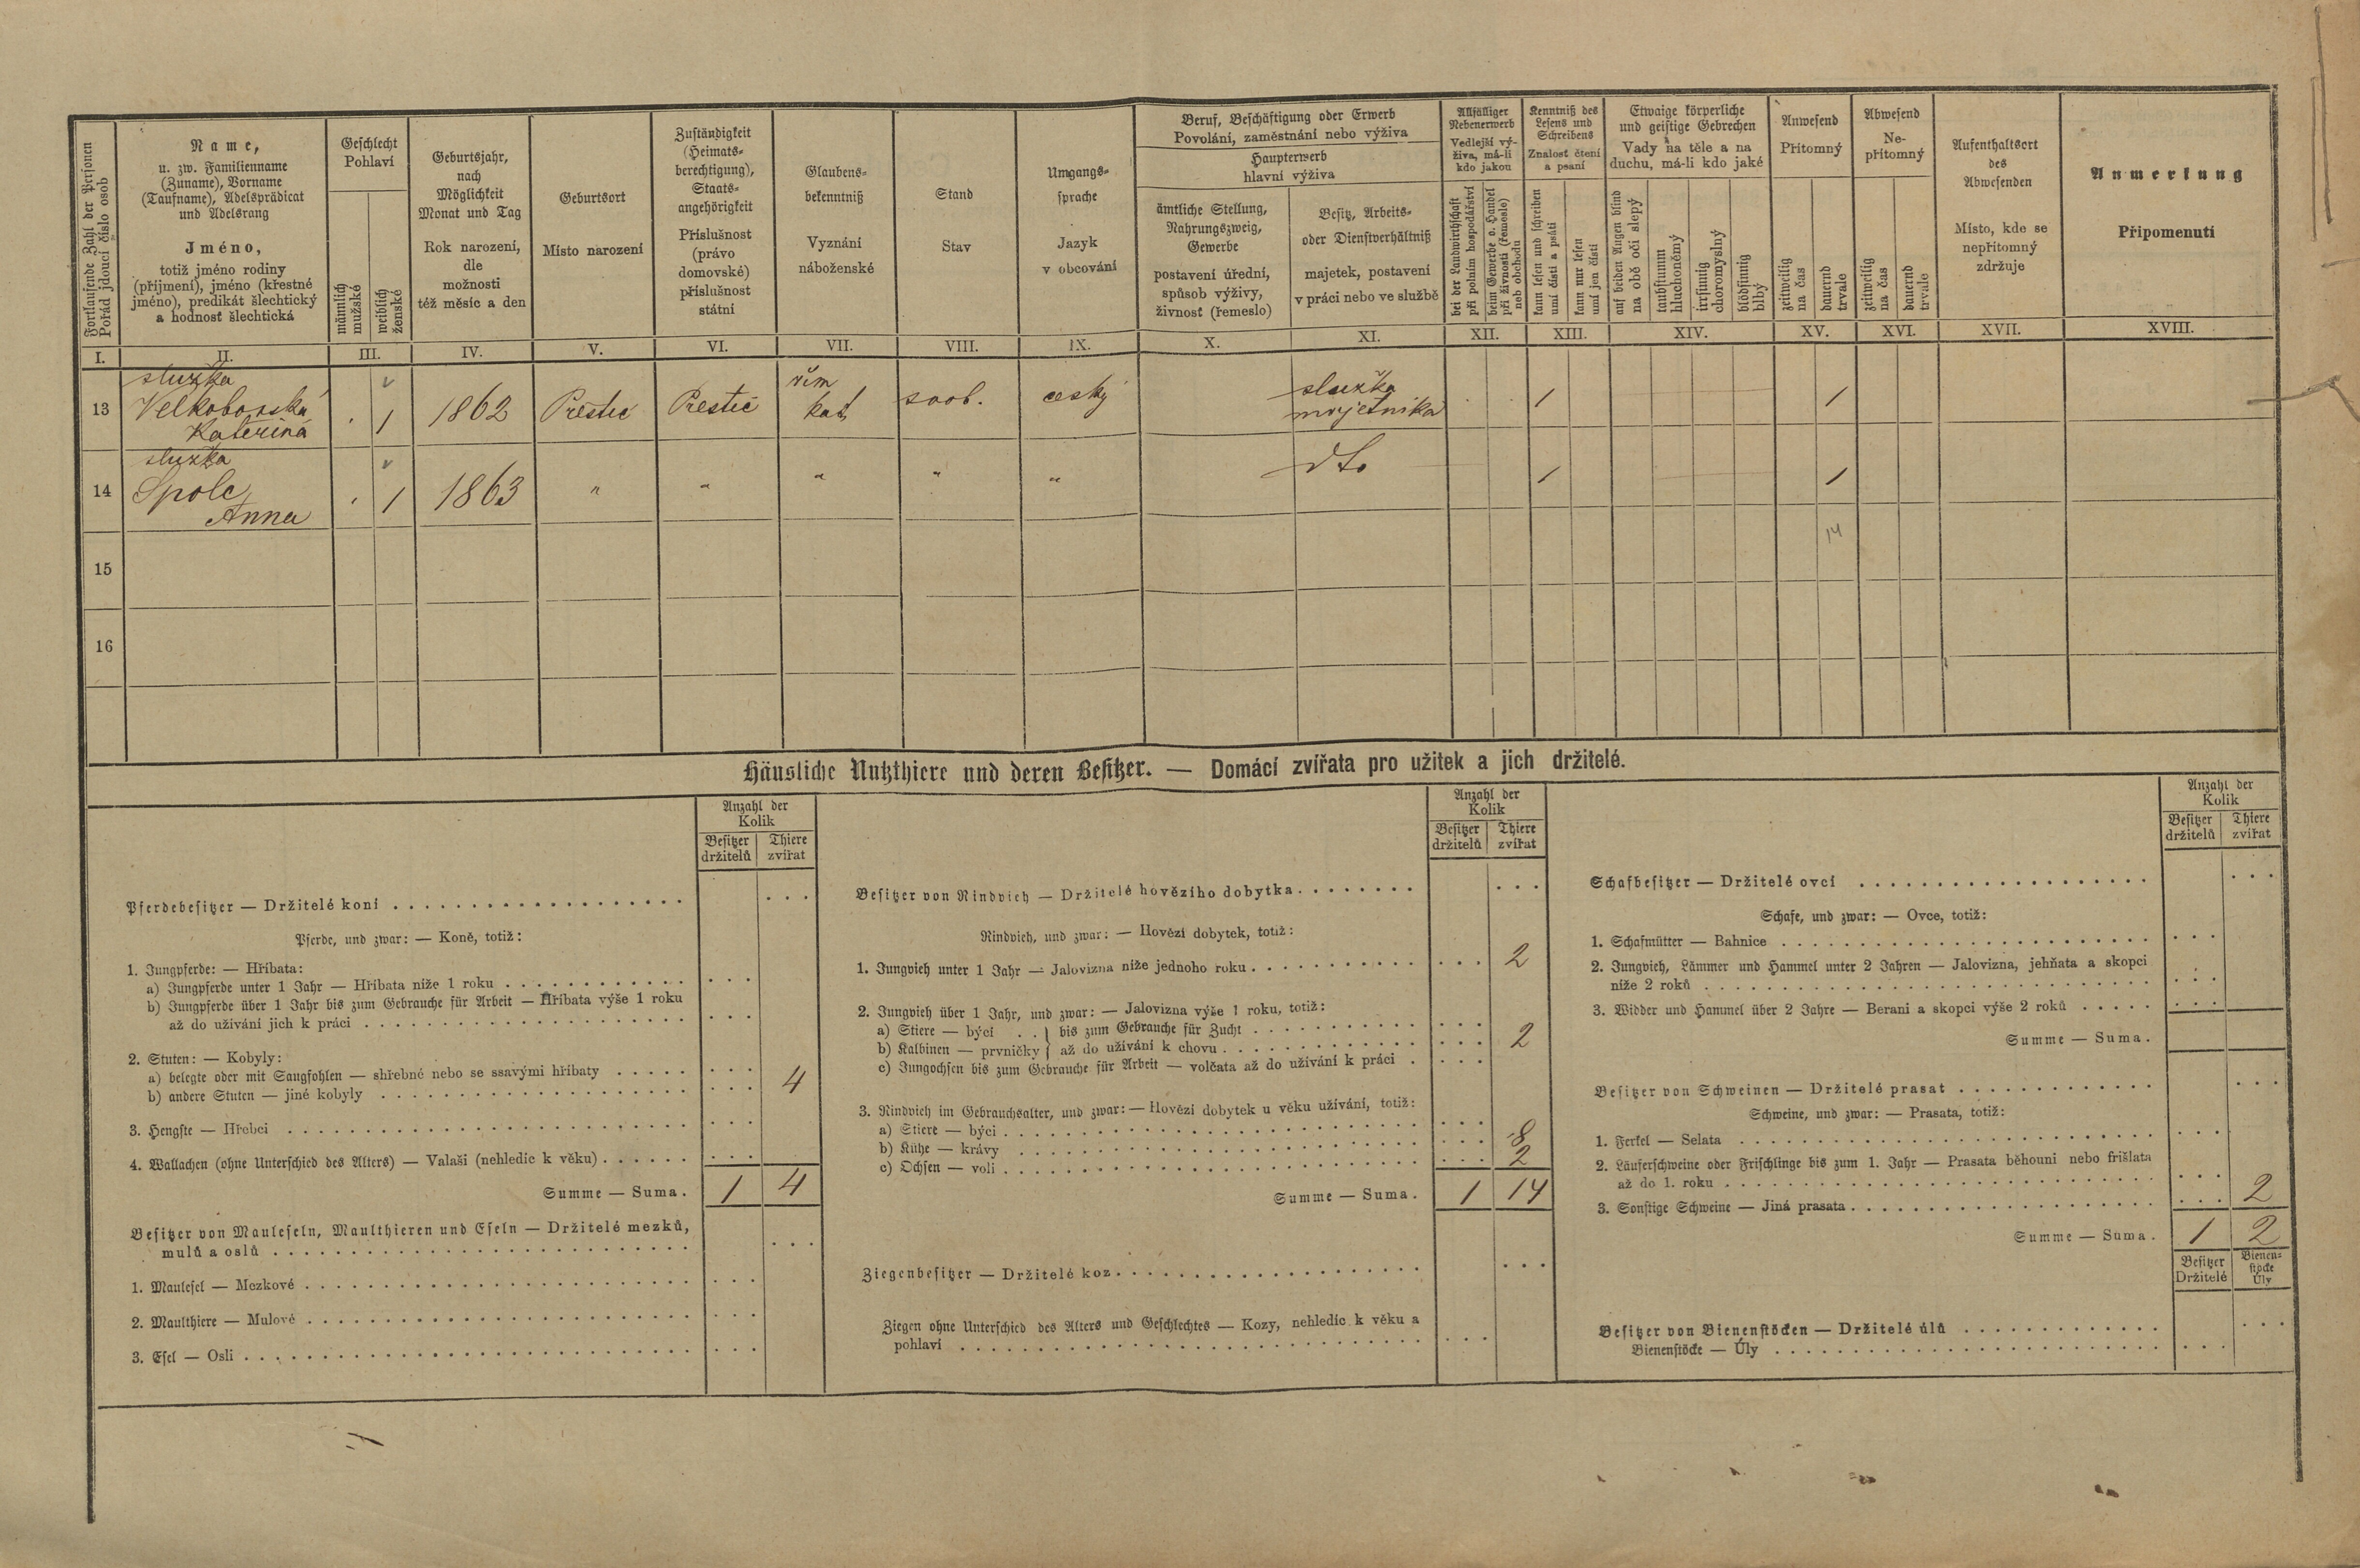 Fortlaufende Zahl der Personen
Pořád jdoucí číslo osob
Name,
u. zw. Familienname
(Zuname), Vorname
(Taufname), Adelsprädicat
und Adelsrang
Jméno,
totiž jméno rodiny
(příjmení), jméno (křestné
jméno), predikát šlechtický
a hodnosť šlechtická
Geschlecht
Pohlaví
männlich
mužské
weiblich
ženské
Geburtsjahr,
nach
Möglichkeit
Monat und Tag
Rok narození,
dle
možnosti
též měsíc a den
Geburtsort
Místo narození
Zuständigkeit
(Heimats-
berechtigung),
Staats-
angehörigkeit
Příslušnost
(právo
domovské)
příslušnost
státní
Glaubens-
bekenntniß
Vyznání
náboženské
Stand
Stav
Umgangs-
sprache
Jazyk
v obcování
Beruf, Beschäftigung oder Erwerb
Povolání, zaměstnání nebo výživa
Haupterwerb
hlavní výživa
ämtliche Stellung,
Nahrungszweig,
Gewerbe
postavení úřední,
spůsob výživy,
živnosť (řemeslo)
Besitz, Arbeits-
oder Dienstverhältniß
majetek, postavení
v práci nebo ve službě
Allfälliger
Nebenerwerb
Vedlejší vý-
živa, má-li
kdo jakou
bei der Landwirthschaft
při polním hospodářství
beim Gewerbe o. Handel
při živnosti (řemeslo)
neb obchodu
Kenntniß des
Lesens und
Schreibens
Znalosť čtení
a psaní
kann lesen und schreiben
umí čísti a psáti
kann nur lesen
umí jen čísti
Etwaige körperliche
und geistige Gebrechen
Vady na těle a na
duchu, má-li kdo jaké
auf beiden Augen blind
na obě oči slepý
taubstumm
hluchoněmý
irrsinnig
choromyslný
blödsinnig
blbý
Anwesend
Přítomný
zeitweilig
na čas
dauernd
trvale
Abwesend
Ne-
přítomný
zeitweilig
na čas
dauernd
trvale
Aufenthaltsort
des
Abwesenden
Místo, kde se
nepřítomný
zdržuje
Anmerkung
Připomenutí
I. II. III. IV. V. VI. VII. VIII. IX. X. XI. XII. XIII. XIV. XV. XVI. XVII. XVIII.
služka
13 Velkoborská 1 1862 Přestic Přestic řím kat svob. český služka 1 1
Kateřina
služka
14 Spolc 1 1863 " " " " " dto 1 1
Anna
14
15
16
Häusliche Nutzthiere und deren Besitzer. — Domácí zvířata pro užitek a jich držitelé.
Anzahl der
Kolik
Besitzer Thiere
držitelů zvířat
Pferdebesitzer — Držitelé koní
Pferde, und zwar: — Koně, totiž:
1. Jungpferde: — Hříbata:
a) Jungpferde unter 1 Jahr — Hříbata níže 1 roku
b) Jungpferde über 1 Jahr bis zum Gebrauche für Arbeit — Hříbata výše 1 roku
až do užívání jich k práci
2. Stuten: — Kobyly:
a) belegte oder mit Saugfohlen — shřebné nebo se ssavými hříbaty
b) andere Stuten — jiné kobyly 4
3. Hengste — Hřebci
4. Wallachen (ohne Unterschied des Alters) — Valaši (nehledíc k věku)
Summe — Suma. 1 4
Besitzer von Mauleseln, Maulthieren und Eseln — Držitelé mezků,
mulů a oslů
1. Maulesel — Mezkové
2. Maulthiere — Mulové
3. Esel — Osli
Anzahl der
Kolik
Besitzer Thiere
držitelů zvířat
Besitzer von Rindvieh — Držitelé hovězího dobytka
Rindvieh, und zwar: — Hovězí dobytek, totiž:
1. Jungvieh unter 1 Jahr — Jalovizna níže jednoho roku 2
2. Jungvieh über 1 Jahr, und zwar: — Jalovizna výše 1 roku, totiž:
a) Stiere — býci . . } bis zum Gebrauche für Zucht
b) Kalbinen — prvničky } až do užívání k chovu 2
c) Jungochsen bis zum Gebrauche für Arbeit — volčata až do užívání k práci
3. Rindvieh im Gebrauchsalter, und zwar: — Hovězí dobytek u věku užívání, totiž:
a) Stiere — býci
b) Kühe — krávy 8
c) Ochsen — voli 2
Summe — Suma. 1 14
Ziegenbesitzer — Držitelé koz
Ziegen ohne Unterschied des Alters und Geschlechtes — Kozy, nehledíc k věku a
pohlaví
Anzahl der
Kolik
Besitzer Thiere
držitelů zvířat
Schafbesitzer — Držitelé ovcí
Schafe, und zwar: — Ovce, totiž:
1. Schafmütter — Bahnice
2. Jungvieh, Lämmer und Hammel unter 2 Jahren — Jalovizna, jehňata a skopci
níže 2 roků
3. Widder und Hammel über 2 Jahre — Berani a skopci výše 2 roků
Summe — Suma.
Besitzer von Schweinen — Držitelé prasat
Schweine, und zwar: — Prasata, totiž:
1. Ferkel — Selata
2. Läuferschweine oder Frischlinge bis zum 1. Jahr — Prasata běhouni nebo frišlata
až do 1. roku
3. Sonstige Schweine — Jiná prasata 2
Summe — Suma. 1 2
Besitzer Bienen-
Držitelé stöcke
Úly
Besitzer von Bienenstöcken — Držitelé úlů
Bienenstöcke — Úly